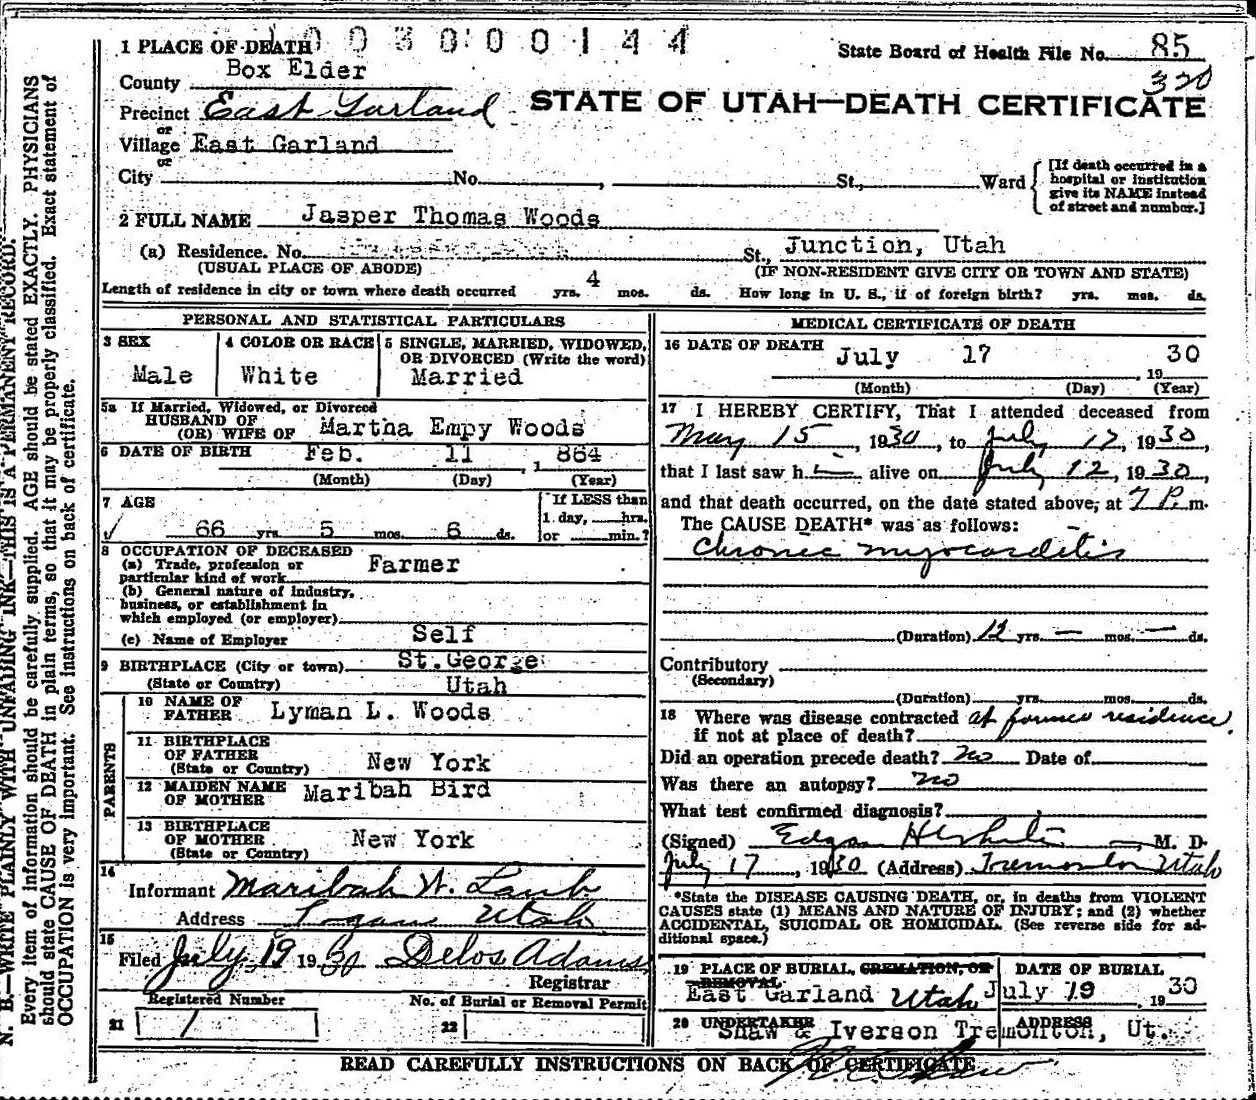 1 PLACE OF DEATH 1 0 0 3 0 0 0 0 1 4 4
State Board of Health File No. 85
320
County Box Elder
Precinct East Garland
STATE OF UTAH—DEATH CERTIFICATE
or
Village East Garland
or
City No. , St., Ward
[If death occurred in a
hospital or institution
give its NAME instead
of street and number.]
2 FULL NAME Jasper Thomas Woods
(a) Residence. No. St., Junction, Utah
(USUAL PLACE OF ABODE) (IF NON-RESIDENT GIVE CITY OR TOWN AND STATE)
Length of residence in city or town where death occurred yrs. 4 mos. ds. How long in U. S., if of foreign birth? yrs. mos. ds.
PERSONAL AND STATISTICAL PARTICULARS
3 SEX
Male
4 COLOR OR RACE
White
5 SINGLE, MARRIED, WIDOWED,
OR DIVORCED (Write the word)
Married
5a If Married, Widowed, or Divorced
HUSBAND OF
(OR) WIFE OF Martha Empy Woods
6 DATE OF BIRTH Feb. 11 1 864
(Month) (Day) (Year)
7 AGE
66 yrs. 5 mos. 6 ds.
If LESS than
1 day, hrs.
or min.?
8 OCCUPATION OF DECEASED
(a) Trade, profession or
particular kind of work Farmer
(b) General nature of industry,
business, or establishment in
which employed (or employer)
(c) Name of Employer Self
9 BIRTHPLACE (City or town) St.George
(State or Country) Utah
PARENTS
10 NAME OF
FATHER Lyman L. Woods
11 BIRTHPLACE
OF FATHER
(State or Country) New York
12 MAIDEN NAME
OF MOTHER Maribah Bird
13 BIRTHPLACE
OF MOTHER
(State or Country) New York
14
Informant Maribah W. Laub
Address Logan Utah
15
Filed July 19 1930 Delos Adams
Registrar
Registered Number
21 1
No. of Burial or Removal Permit
22
MEDICAL CERTIFICATE OF DEATH
16 DATE OF DEATH July 17 19 30
(Month) (Day) (Year)
17 I HEREBY CERTIFY, That I attended deceased from
May 15, 1930, to July 12, 1930
that I last saw h i alive on July 12, 1930,
and that death occurred, on the date stated above, at 7 P. m.
The CAUSE DEATH* was as follows:
Chronic myocarditis
(Duration) 12 yrs. — mos. — ds.
Contributory
(Secondary)
(Duration) yrs. mos. ds.
18 Where was disease contracted at former residence.
if not at place of death?
Did an operation precede death? No Date of
Was there an autopsy? No
What test confirmed diagnosis?
(Signed) Edgar M. D.
July 17, 1930 (Address) Tremonton Utah
*State the DISEASE CAUSING DEATH, or, in deaths from VIOLENT
CAUSES state (1) MEANS AND NATURE OF INJURY; and (2) whether
ACCIDENTAL, SUICIDAL OR HOMICIDAL. (See reverse side for ad-
ditional space.)
19 PLACE OF BURIAL, CREMATION, OR
REMOVAL
East Garland Utah
DATE OF BURIAL
July 19 19 30
20 UNDERTAKER ADDRESS
Shaw & Iverson Tremonton, Ut.
READ CAREFULLY INSTRUCTIONS ON BACK OF CERTIFICATE
N. B.—WRITE PLAINLY WITH UNFADING INK—THIS IS A PERMANENT RECORD.
Every item of information should be carefully supplied. AGE should be stated EXACTLY. PHYSICIANS
should state CAUSE OF DEATH in plain terms, so that it may be properly classified. Exact statement of
OCCUPATION is very important. See instructions on back of certificate.